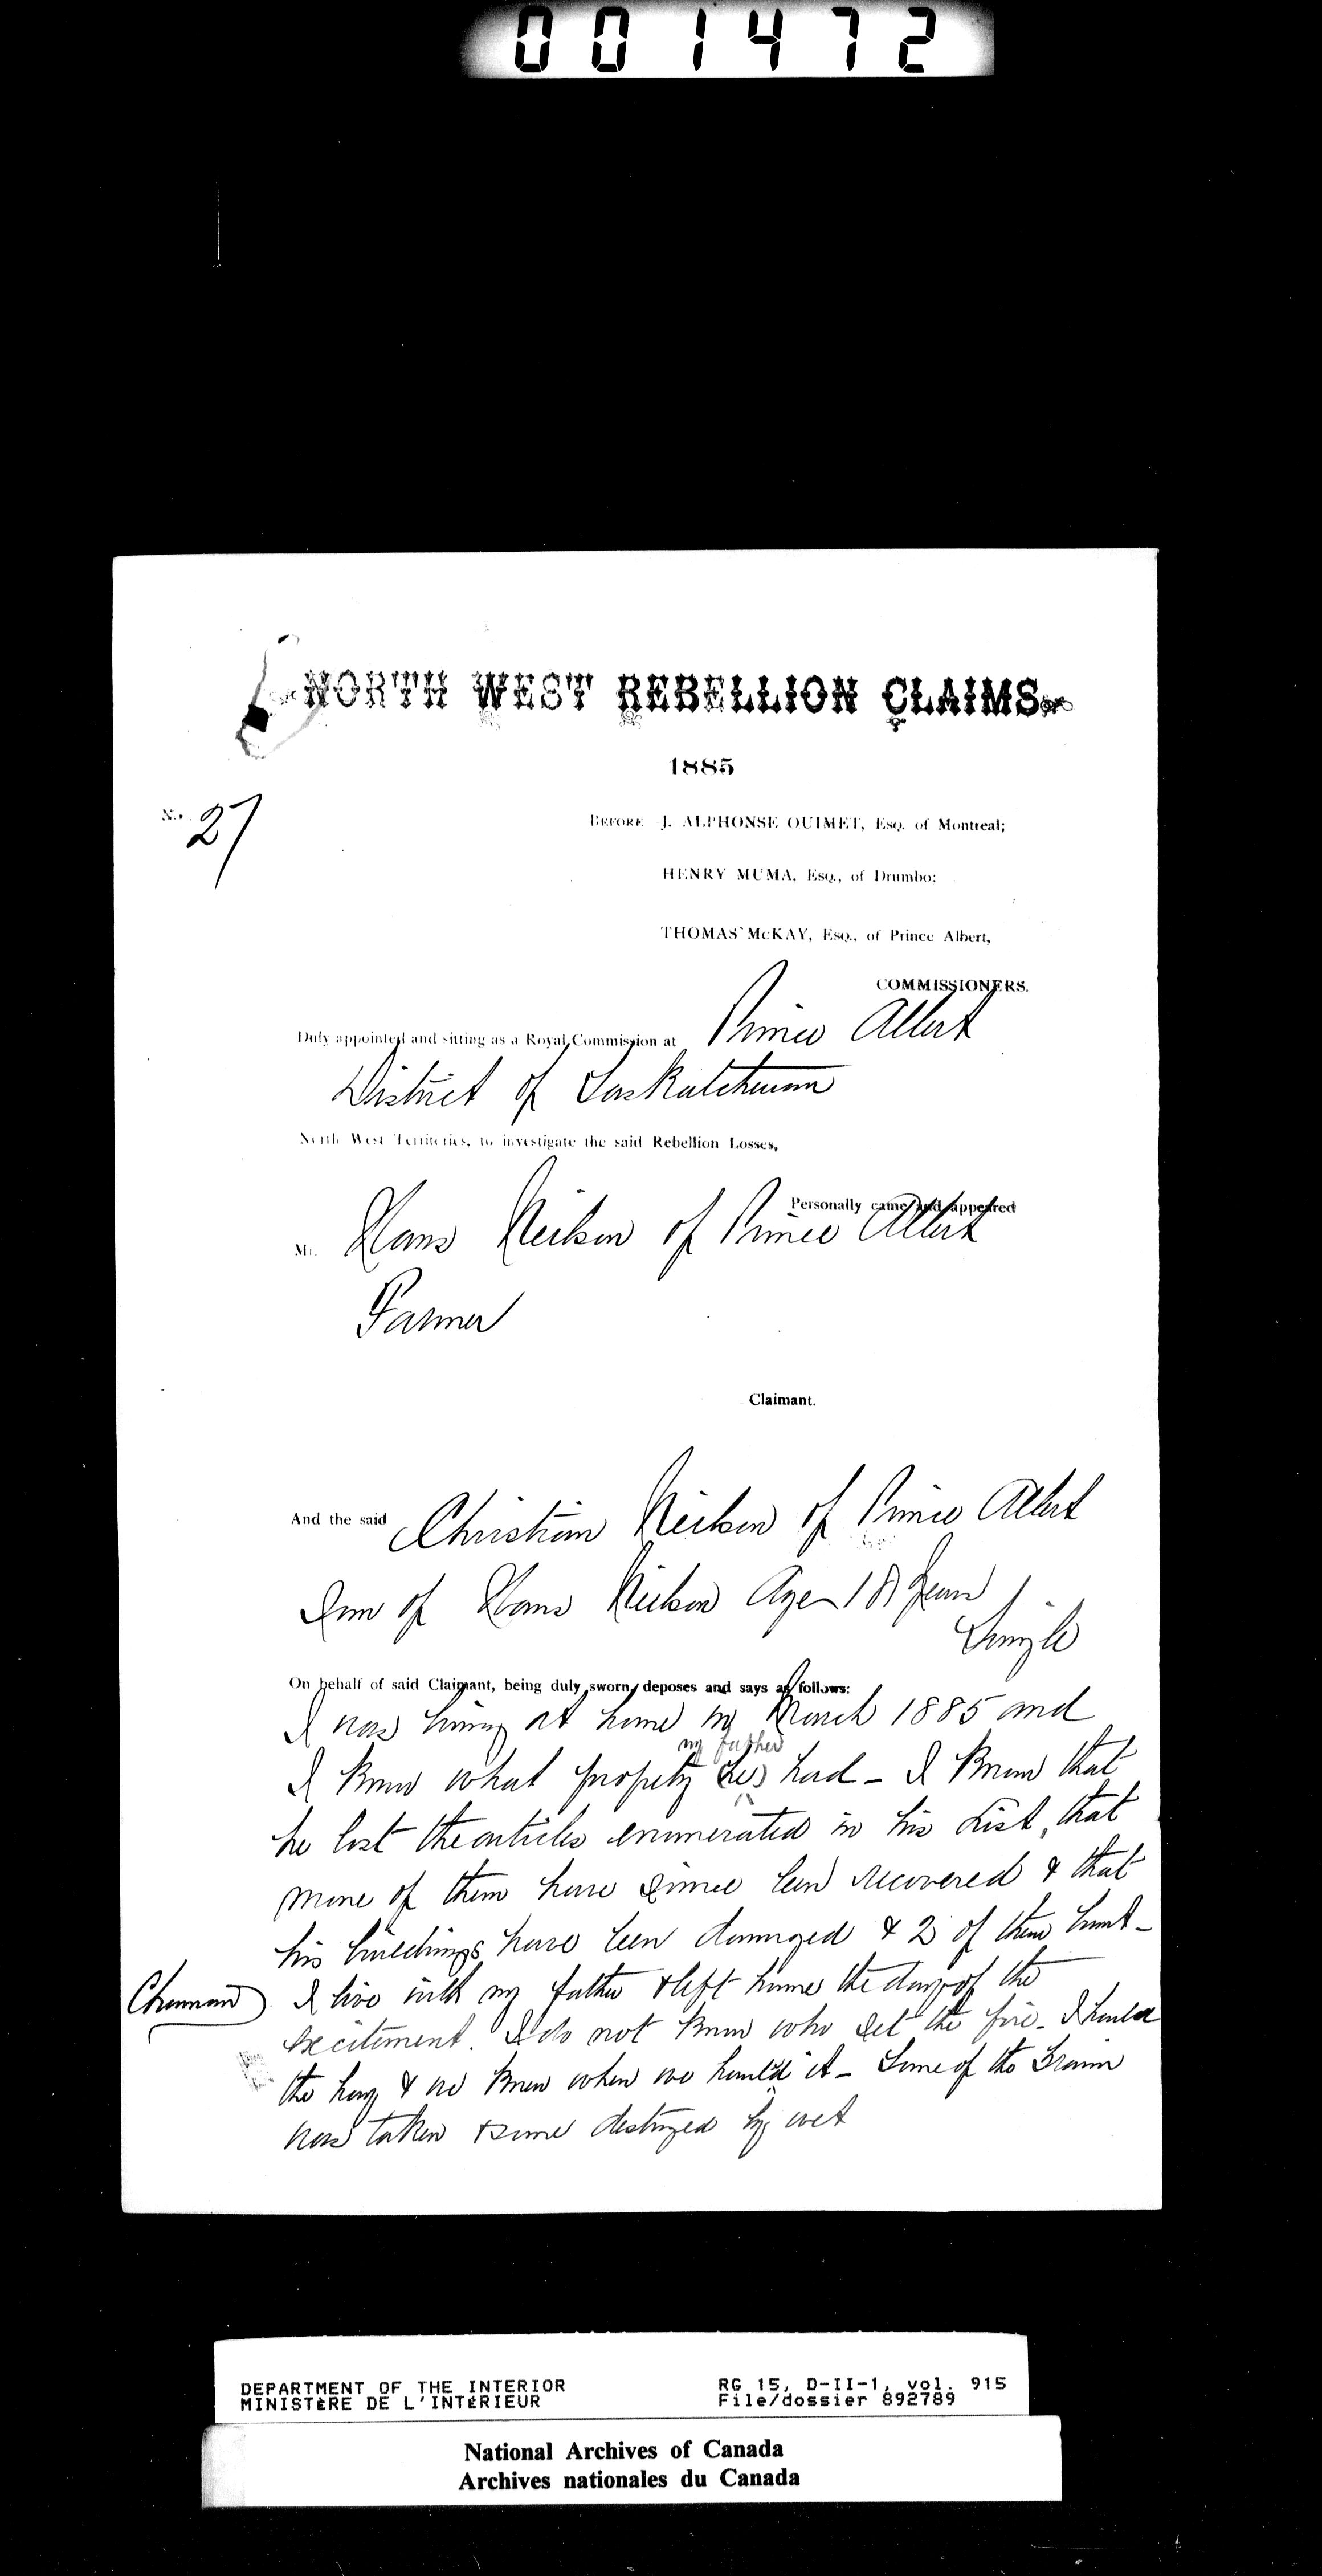 001472
NORTH WEST REBELLION CLAIMS.
1885
No. 27
BEFORE J. ALPHONSE OUIMET, Esq. of Montreal;
HENRY MUMA, Esq., of Drumbo;
THOMAS McKAY, Esq., of Prince Albert,
COMMISSIONERS.
Duly appointed and sitting as a Royal Commission at Prince Albert
District of Saskatchewan
North West Territories, to investigate the said Rebellion Losses,
Personally came and appeared
Mr. Hans Neilson of Prince Albert
Farmer
Claimant.
And the said Christian Neilson of Prince Albert
Son of Hans Neilson Age 18 years
Single
On behalf of said Claimant, being duly sworn, deposes and says as follows:
I was living at home in March 1885 and
my father
I know what property he had - I know that
he lost the articles enumerated in his list, that
none of them have since been recovered & that
his buildings have been damaged & 2 of them burnt -
I live with my father & left home the day of the
excitement. I do not know who set the fire - I hauled
the hay & we knew when we haul'd it - Some of the Grain
was taken & some destroyed by wet
DEPARTMENT OF THE INTERIOR
MINISTÈRE DE L'INTÉRIEUR
RG 15, D-II-1, vol. 915
File/dossier 892789
National Archives of Canada
Archives nationales du Canada